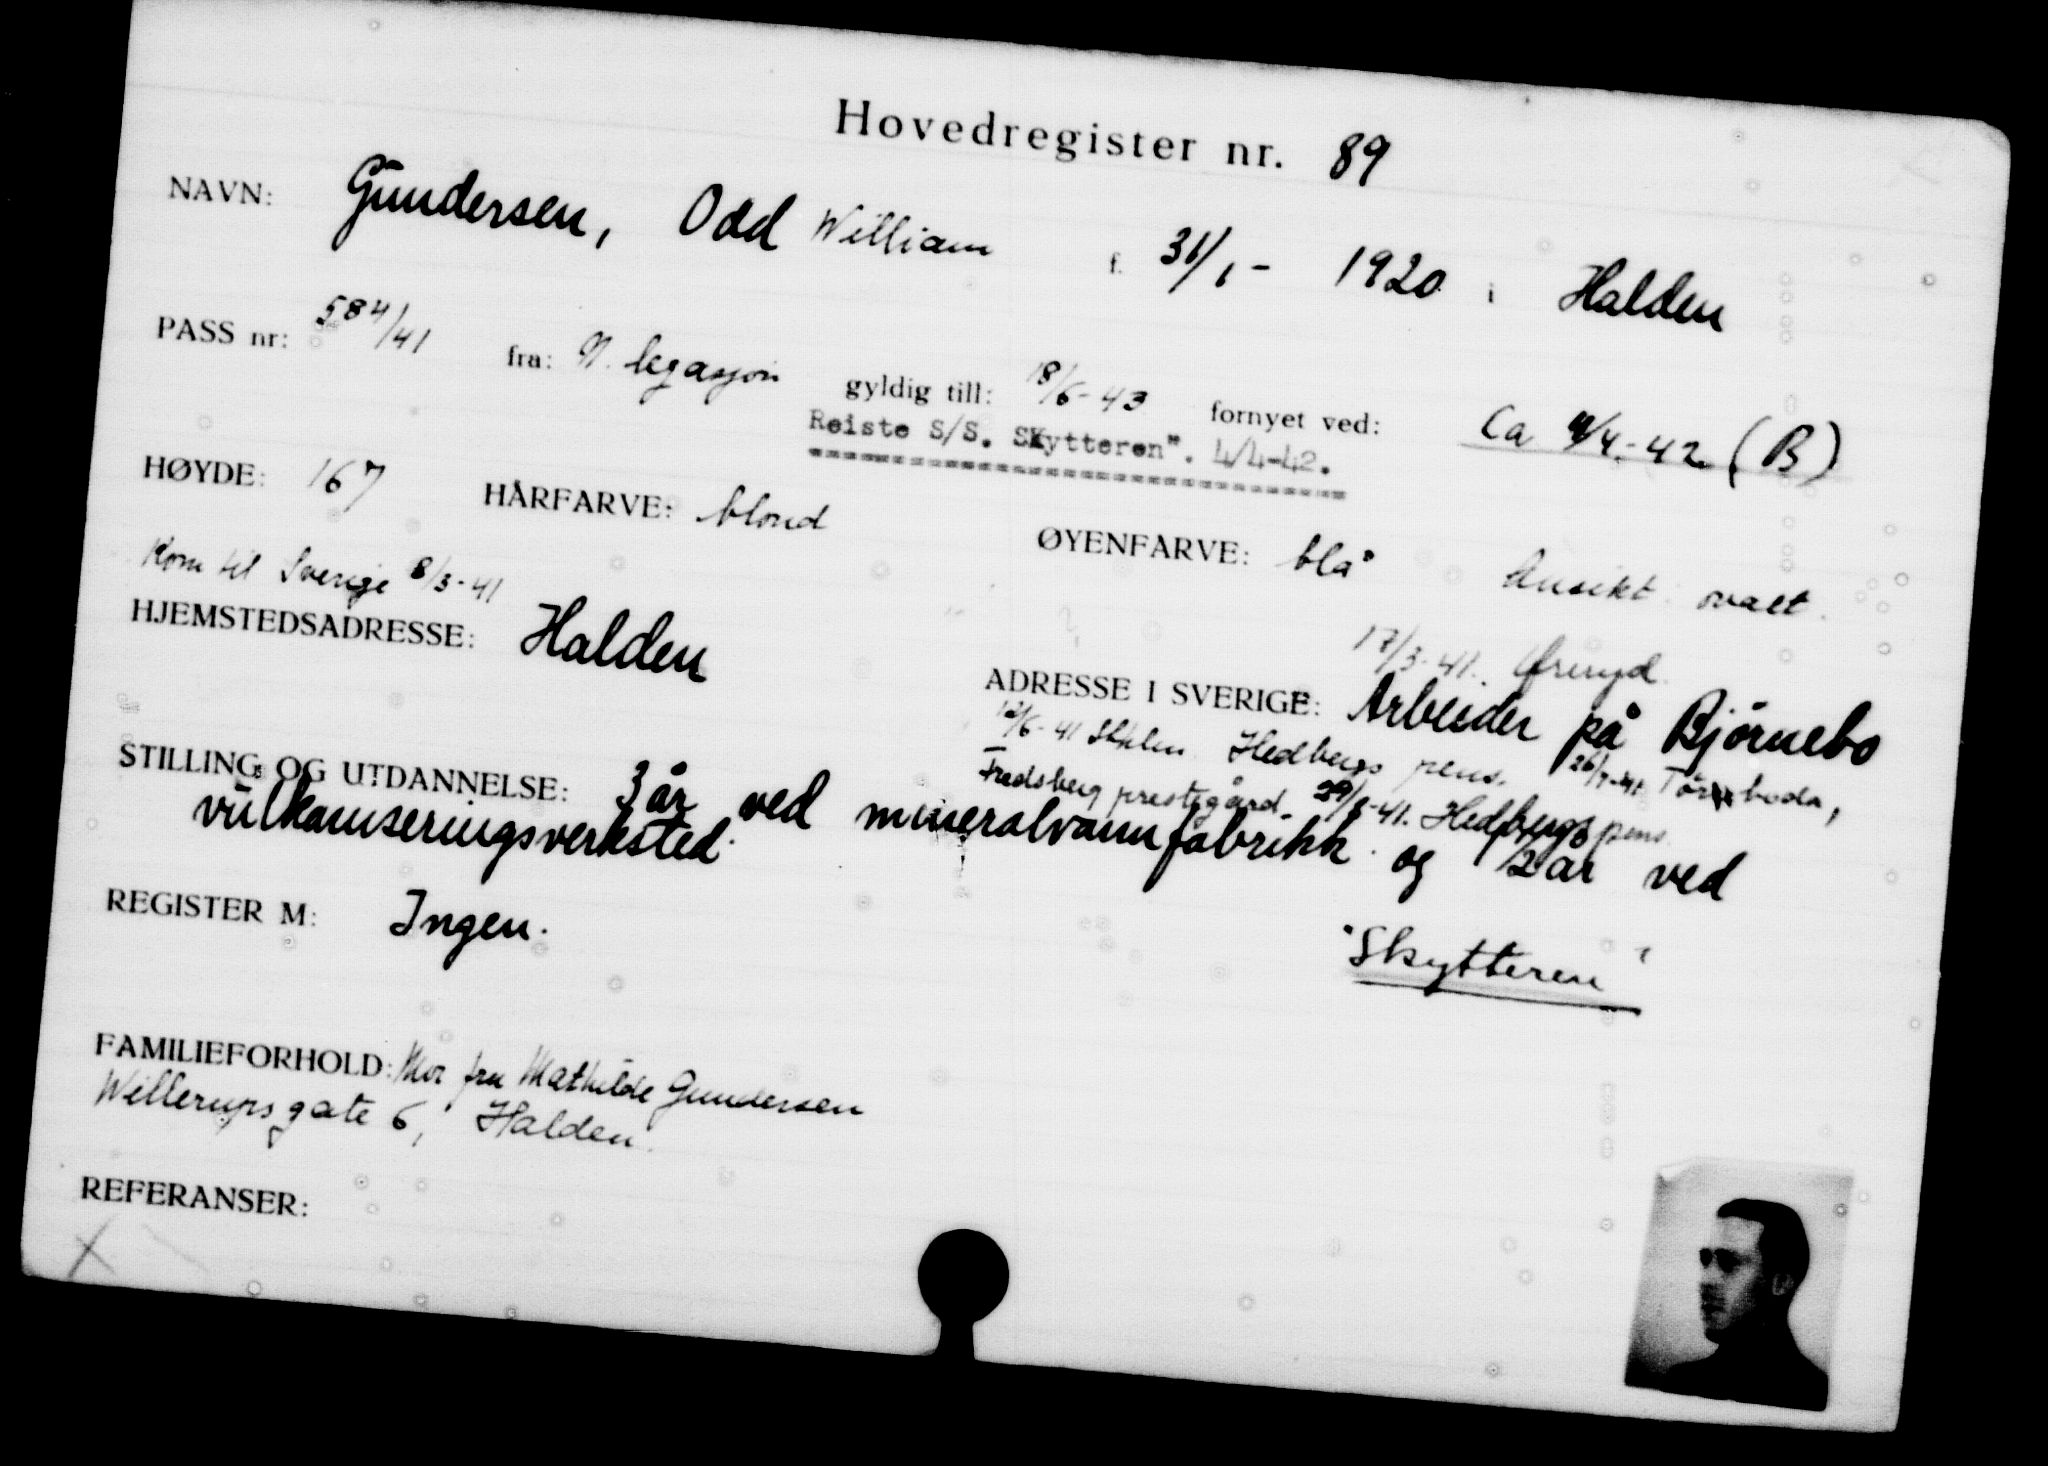 Hovedregister nr. 89
NAVN: Gundersen, Odd William f. 31/1- 1920 i Halden
PASS nr: 584/41 fra: N. legasjon gyldig till: 18/6-43 fornyet ved: Ca 4/4-42 (B)
Reiste S/S. Skytteren". 4/4-42.
HØYDE: 167 HÅRFARVE: blond ØYENFARVE: blå Ansikt ovalt.
Kom til Sverige 8/3-41
HJEMSTEDSADRESSE: Halden
17/3-41. Öreryd.
ADRESSE I SVERIGE: Arbeider på Bjørnebo
12/6-41 Sthlm. Hedbergs pens. 26/7-41 Töreboda,
Fredsberg prestgård. 29/8-41. Hedbergs pens.
STILLING OG UTDANNELSE: 3 år ved mineralvannfabrikk og 2 år ved
vulkaniseringsverksted.
REGISTER M: Ingen.
"Skytteren"
FAMILIEFORHOLD: Mor fru Mathilde Gundersen
Willerupsgate 6, Halden.
REFERANSER:
X